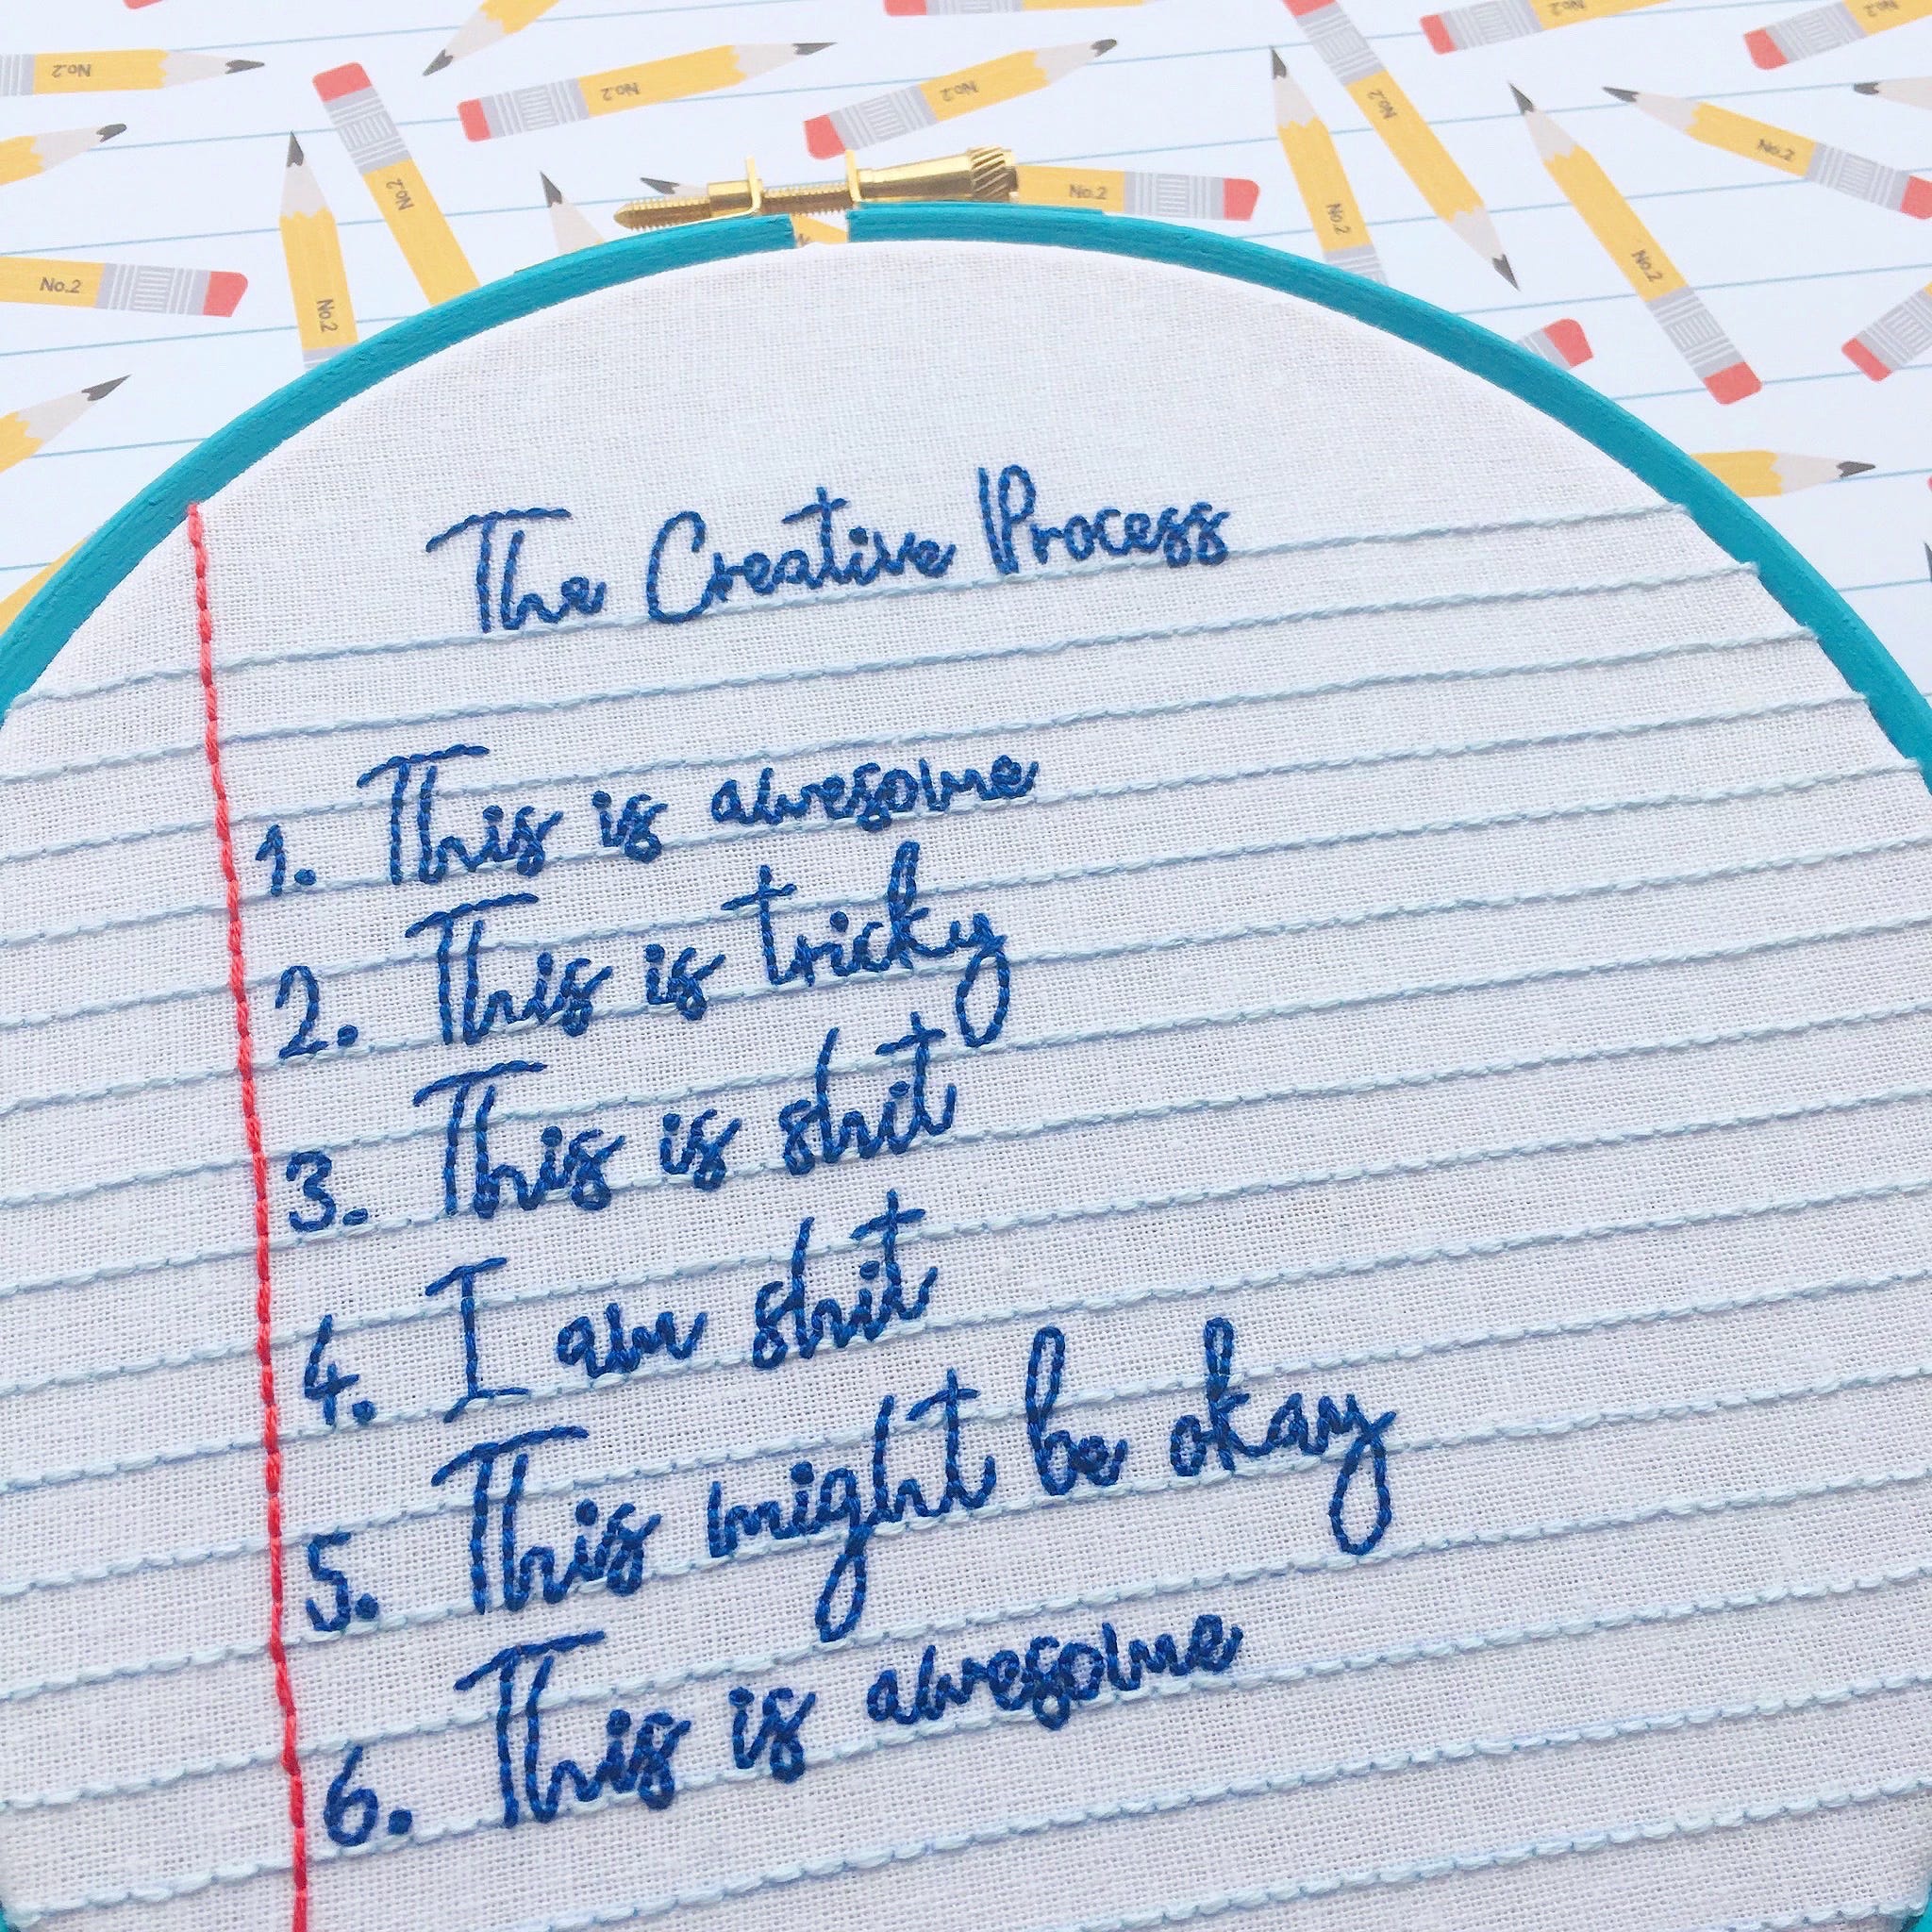 No.2
No.2
No.2
No.2
No.2
No.2
No.2
No.2
No.2
No.2
No.2
No.2
No.2
No.2
The Creative Process
1. This is awesome
2. This is tricky
3. This is shit
4. I am shit
5. This might be okay
6. This is awesome